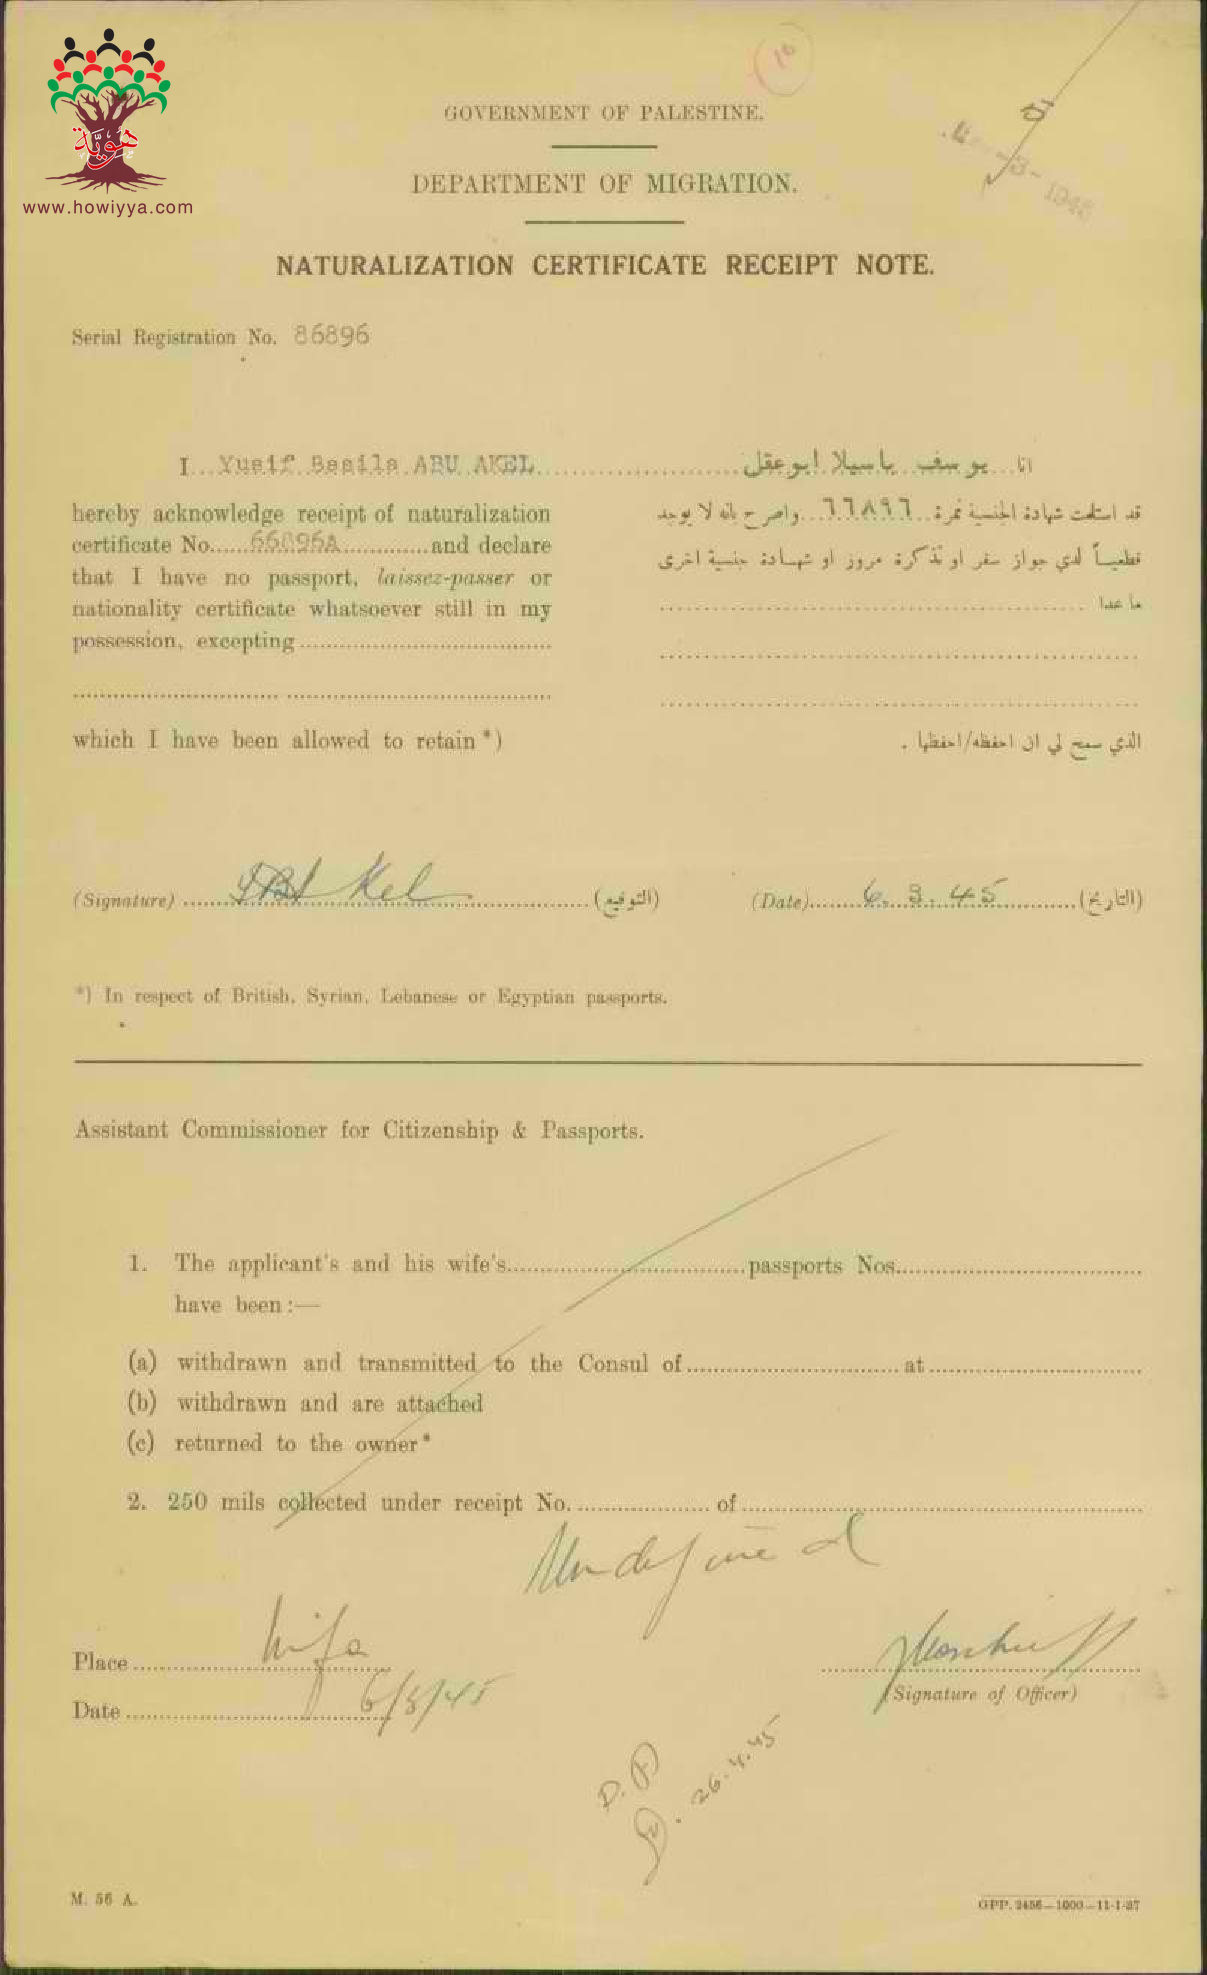 هوية
www.howiyya.com
10
GOVERNMENT OF PALESTINE.
DEPARTMENT OF MIGRATION.
-3- 1945
NATURALIZATION CERTIFICATE RECEIPT NOTE.
Serial Registration No. 86896
I...Yusif Basila ABU AKEL
hereby acknowledge receipt of naturalization
certificate No......66896A.............and declare
that I have no passport, laissez-passer or
nationality certificate whatsoever still in my
possession, excepting
which I have been allowed to retain *)
انا...يوسف باسيلا ابو عقل
قد استلمت شهادة الجنسية نمرة..٦٦٨٩٦...واصرح بانه لا يوجد
قطعياً لدي جواز سفر او تذكرة مرور او شهادة جنسية اخرى
ما عدا
الذي سمح لي ان احفظه/احفظها .
(Signature) (التوقيع) (Date) 6.3.45 (التاريخ)
*) In respect of British, Syrian, Lebanese or Egyptian passports.
Assistant Commissioner for Citizenship & Passports.
1. The applicant's and his wife's passports Nos.
have been :—
(a) withdrawn and transmitted to the Consul of at
(b) withdrawn and are attached
(c) returned to the owner*
2. 250 mils collected under receipt No. of
Place Haifa
(Signature of Officer)
Date 6/3/45
26.4.45
M. 56 A.
GPP. 2456—1000—11-1-37